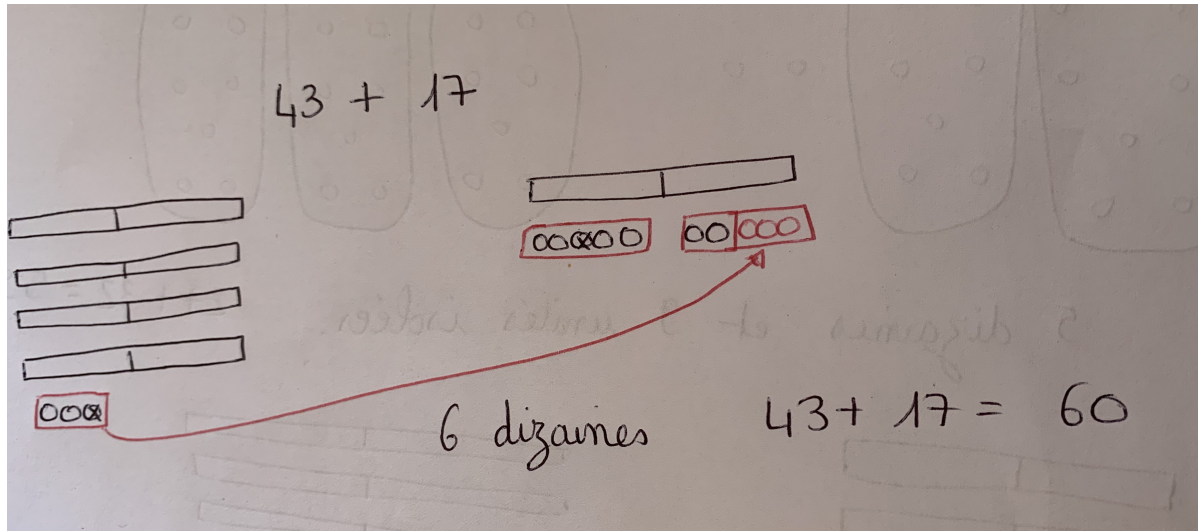 43 + 17
6 dizaines
43 + 17 = 60